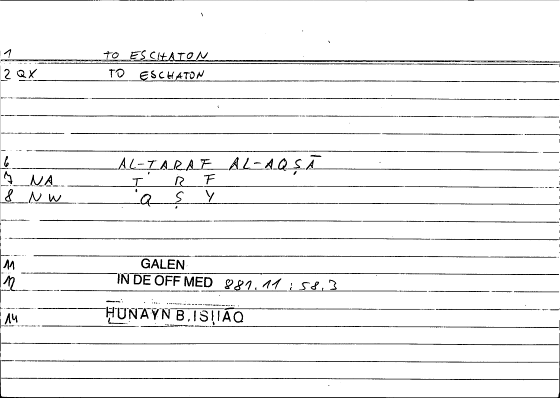 1 TO ESCHATON
2 QX TO ESCHATON
6 AL-ṬARAF AL-AQṢĀ
7 NA Ṭ R F
8 NW Q Ṣ Y
11 GALEN
12 IN DE OFF MED 881.11 ; 58.3
14 ḤUNAYN B. ISḤĀQ